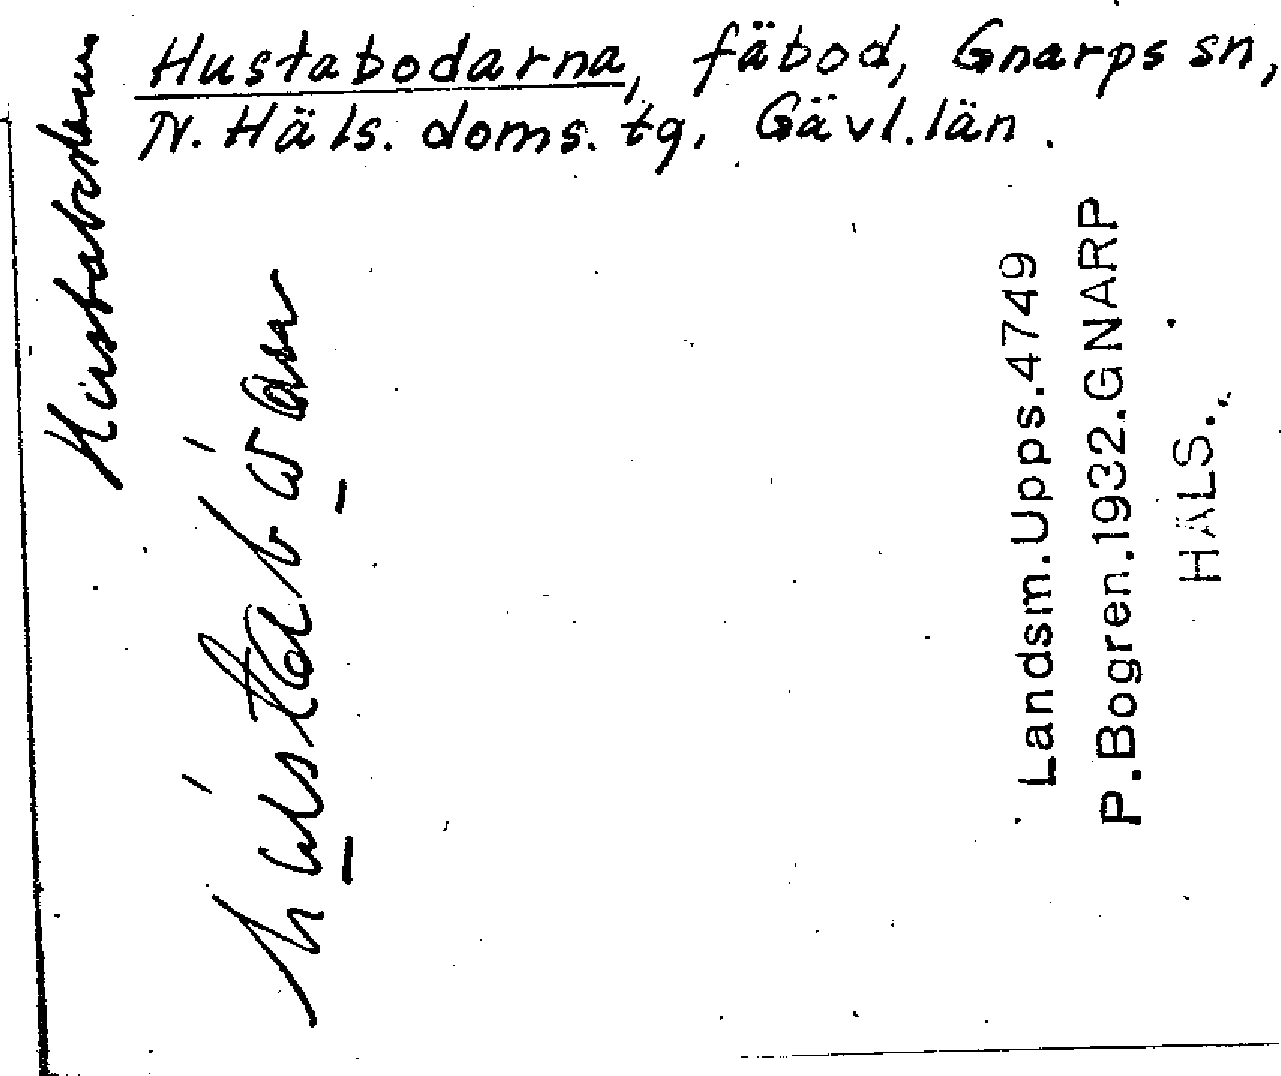 Hustabodarna, fäbod, Gnarps sn,
N. Häls. doms. tg, Gävl. län.
Hustabodarna
Landsm. Upps. 4749
P. Bogren. 1932. GNARP
HÄLS.